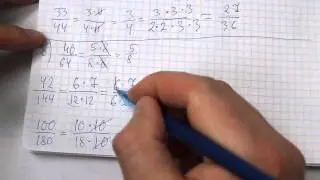 33/44 = 3·11/4·11 = 3/4 = 3·3·3/2·2·3·3 = 27/36
40/64 = 5·8/ = 5/8
42/144 = 6·7/12·12 =
100/180 = 10·10/18·10